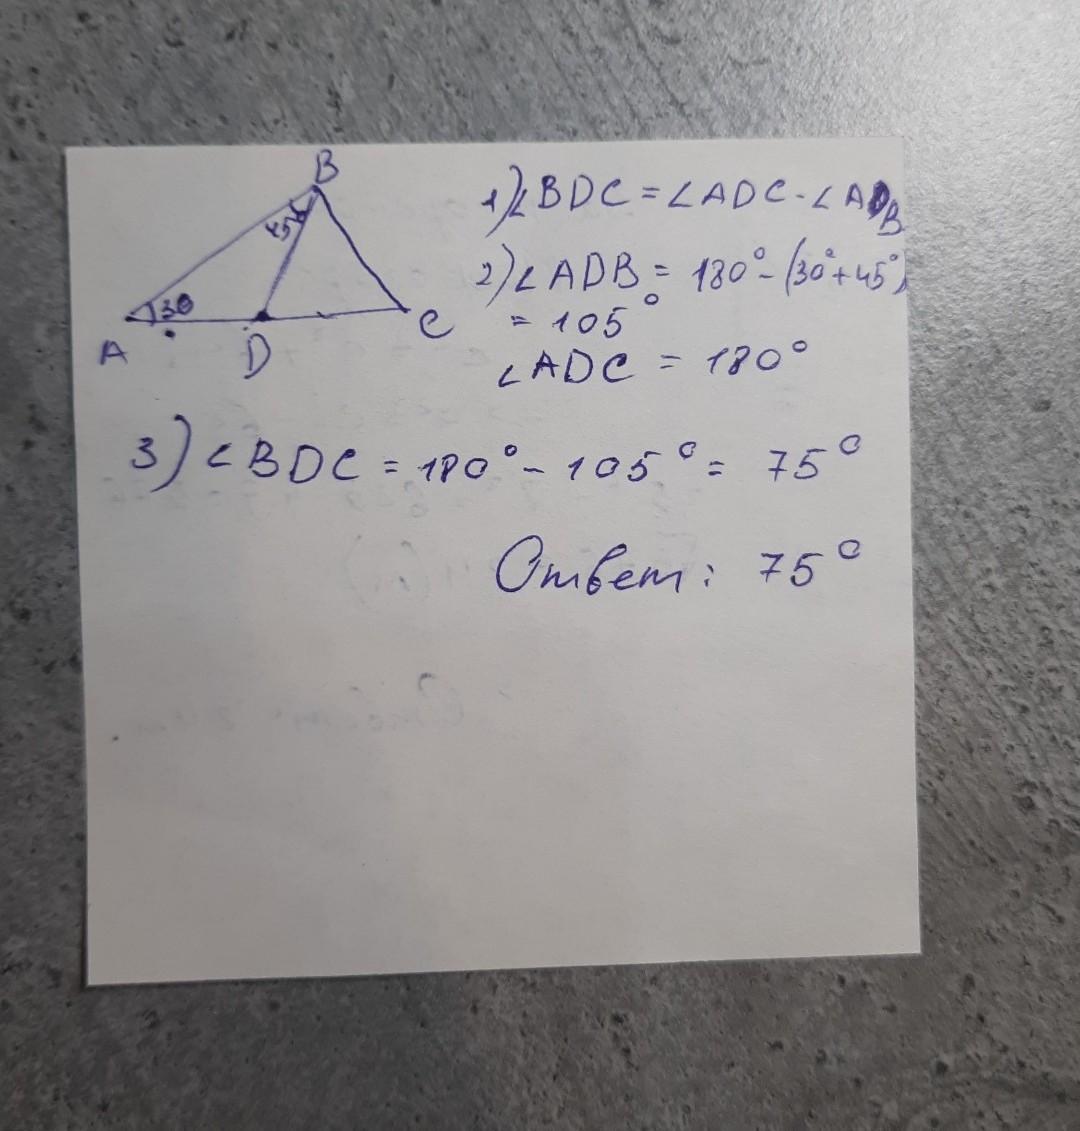 B
45
30
A
D
C
1) ∠BDC = ∠ADC - ∠ADB
2) ∠ADB = 180° - (30° + 45°)
= 105°
∠ADC = 180°
3) ∠BDC = 180° - 105° = 75°
Ответ: 75°